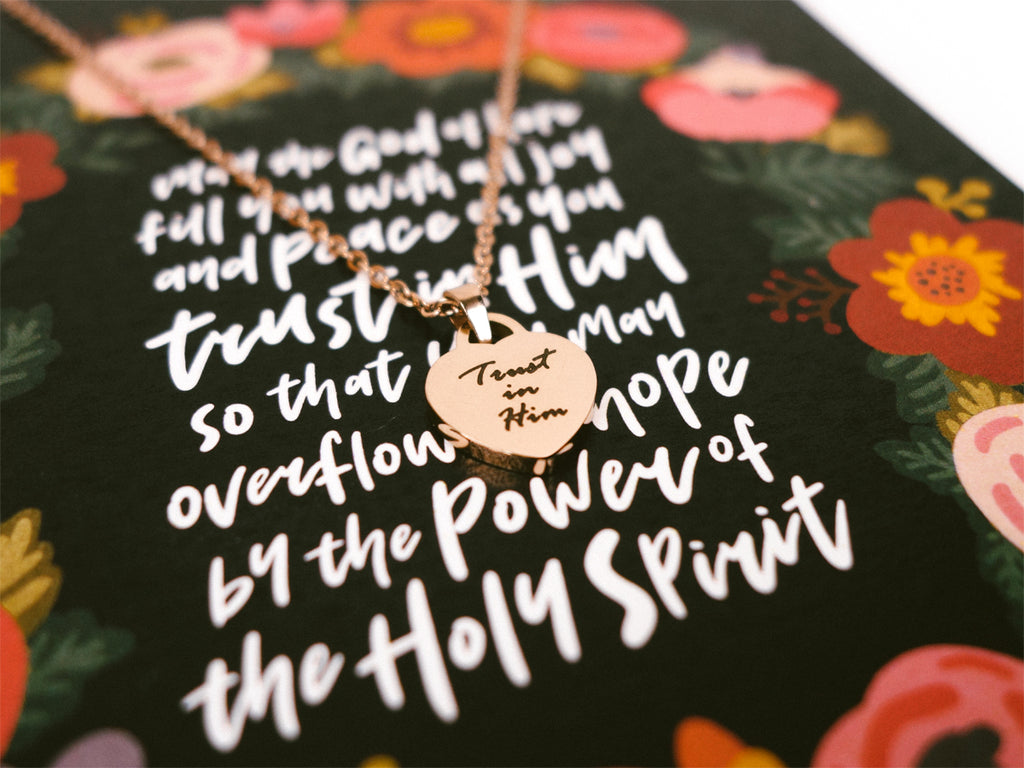 may the God of hope
fill you with all joy
and peace as you
trust in Him
so that may
overflow hope
by the Power of
the Holy Spirit
Trust
in
Him